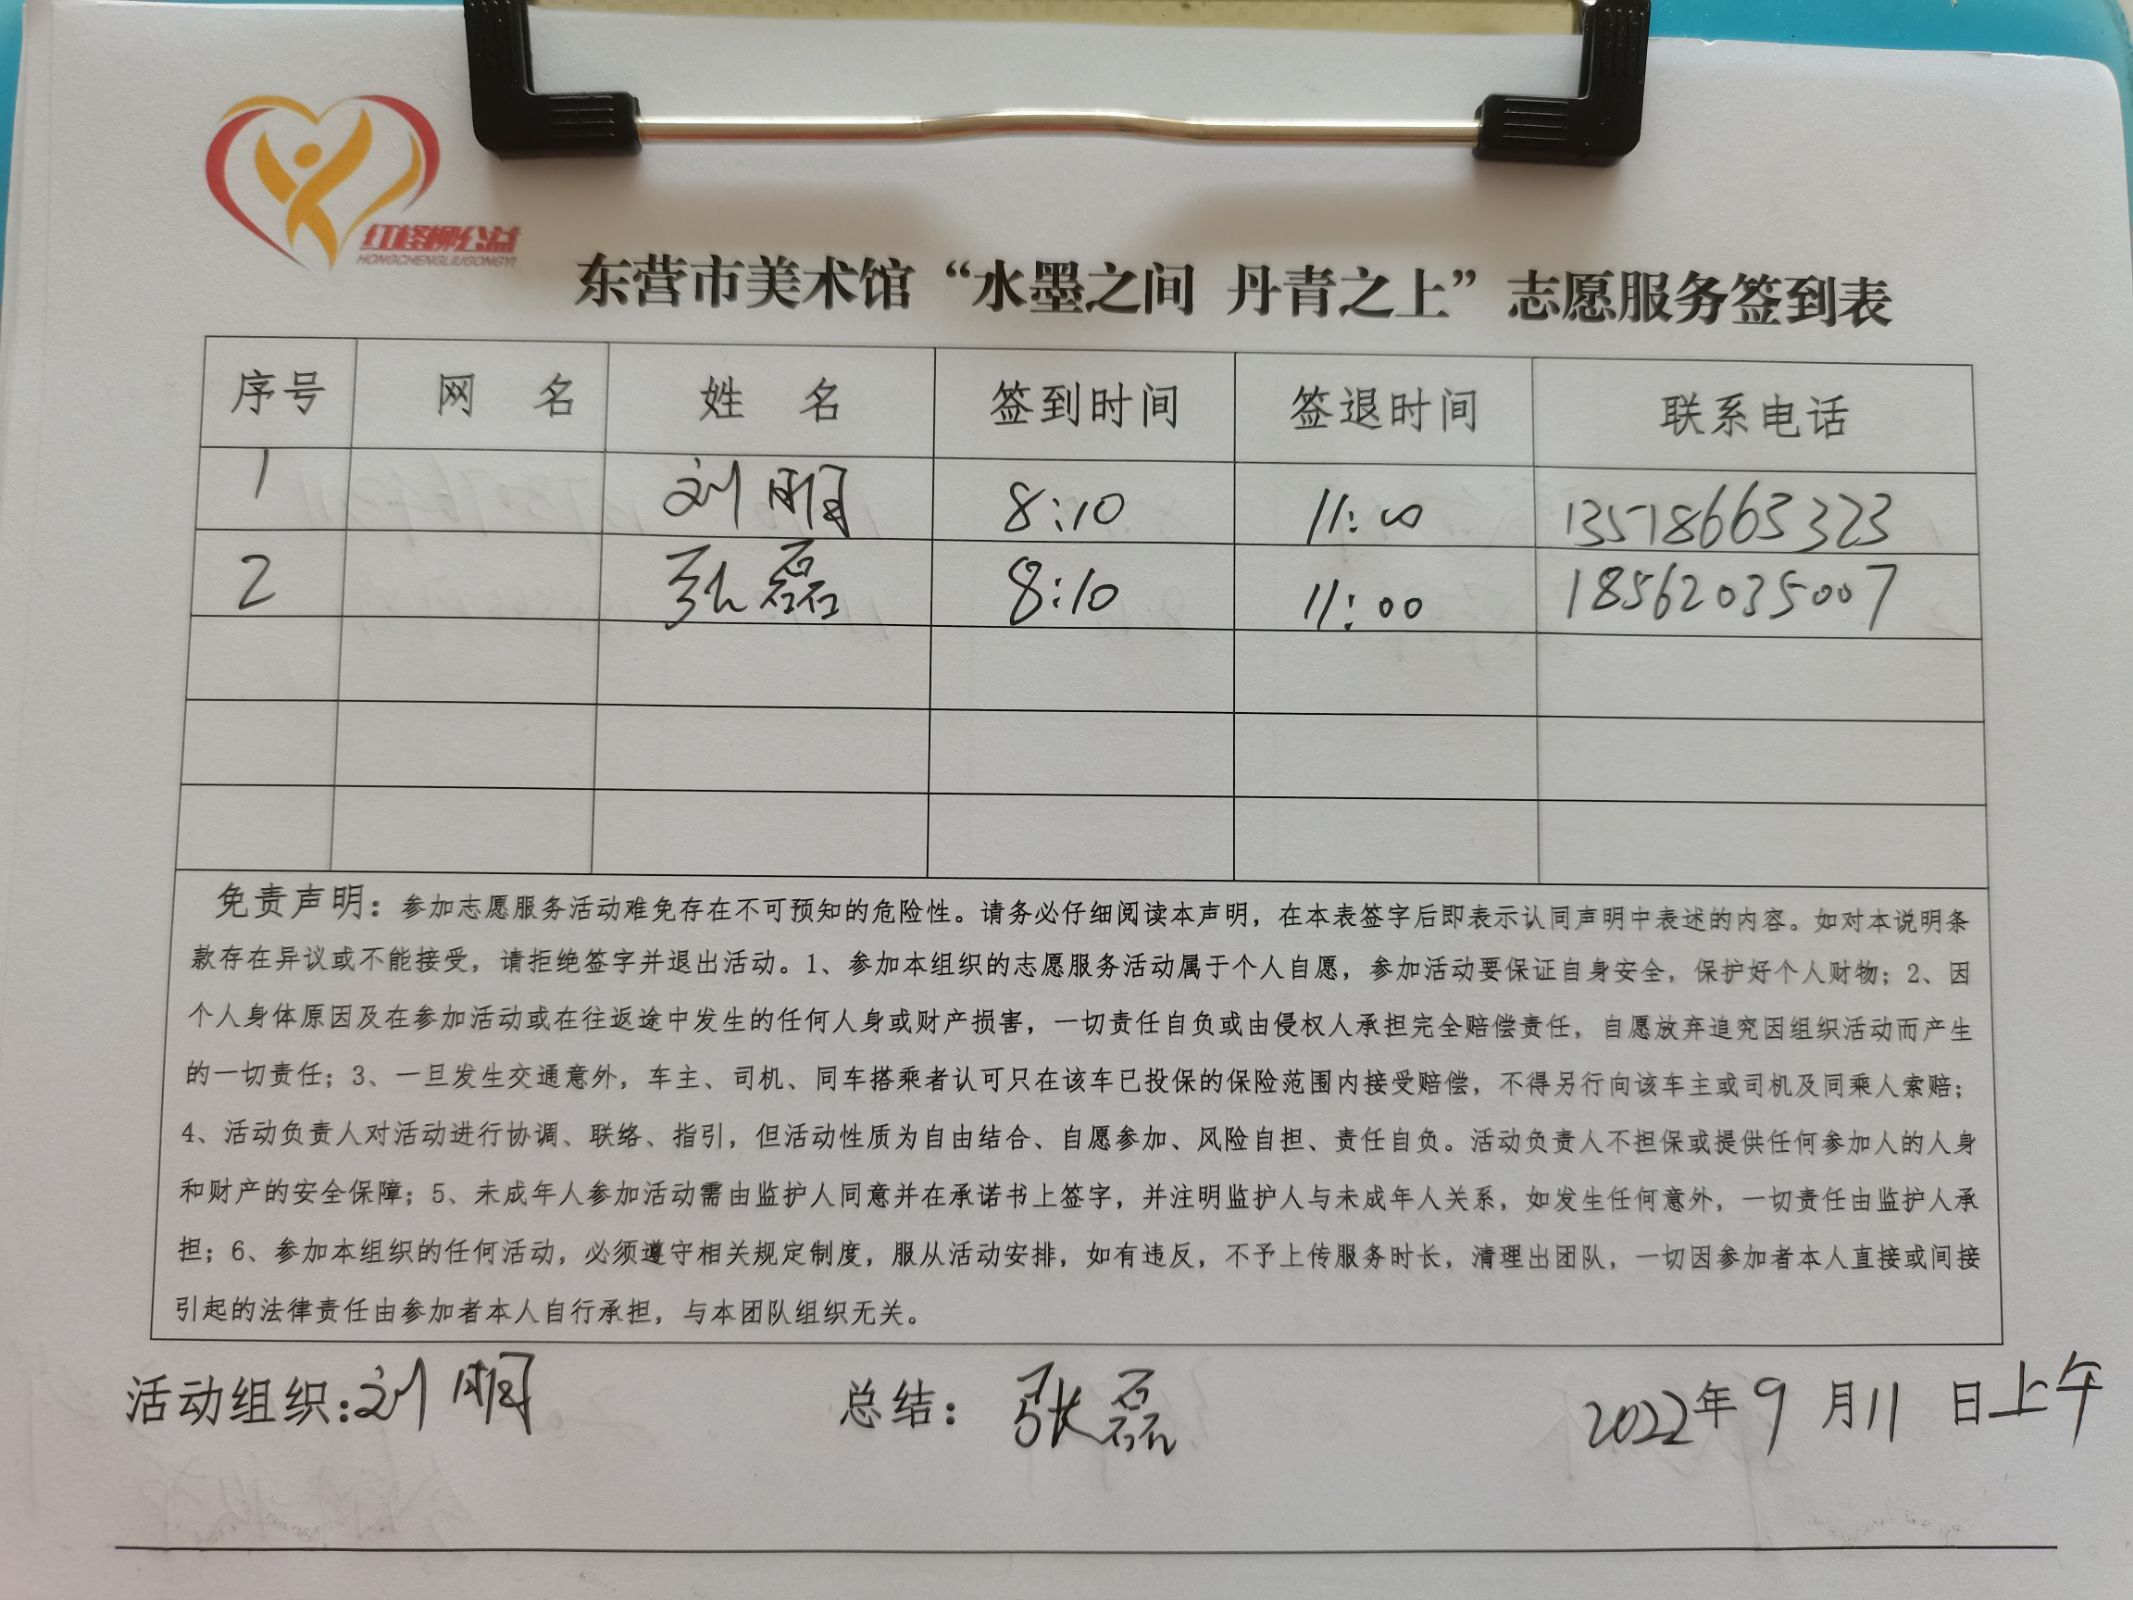 红柽柳公益
HONGCHENGLIUGONGYI
东营市美术馆“水墨之间 丹青之上”志愿服务签到表
序号 网 名 姓 名 签到时间 签退时间 联系电话
1 刘明 8:10 11:00 13518665323
2 张磊 8:10 11:00 18562035007
免责声明：参加志愿服务活动难免存在不可预知的危险性。请务必仔细阅读本声明，在本表签字后即表示认同声明中表述的内容。如对本说明条
款存在异议或不能接受，请拒绝签字并退出活动。1、参加本组织的志愿服务活动属于个人自愿，参加活动要保证自身安全，保护好个人财物；2、因
个人身体原因及在参加活动或在往返途中发生的任何人身或财产损害，一切责任自负或由侵权人承担完全赔偿责任，自愿放弃追究因组织活动而产生
的一切责任；3、一旦发生交通意外，车主、司机、同车搭乘者认可只在该车已投保的保险范围内接受赔偿，不得另行向该车主或司机及同乘人索赔；
4、活动负责人对活动进行协调、联络、指引，但活动性质为自由结合、自愿参加、风险自担、责任自负。活动负责人不担保或提供任何参加人的人身
和财产的安全保障；5、未成年人参加活动需由监护人同意并在承诺书上签字，并注明监护人与未成年人关系，如发生任何意外，一切责任由监护人承
担；6、参加本组织的任何活动，必须遵守相关规定制度，服从活动安排，如有违反，不予上传服务时长，清理出团队，一切因参加者本人直接或间接
引起的法律责任由参加者本人自行承担，与本团队组织无关。
活动组织：刘明 总结：张磊 2022年9月11日上午